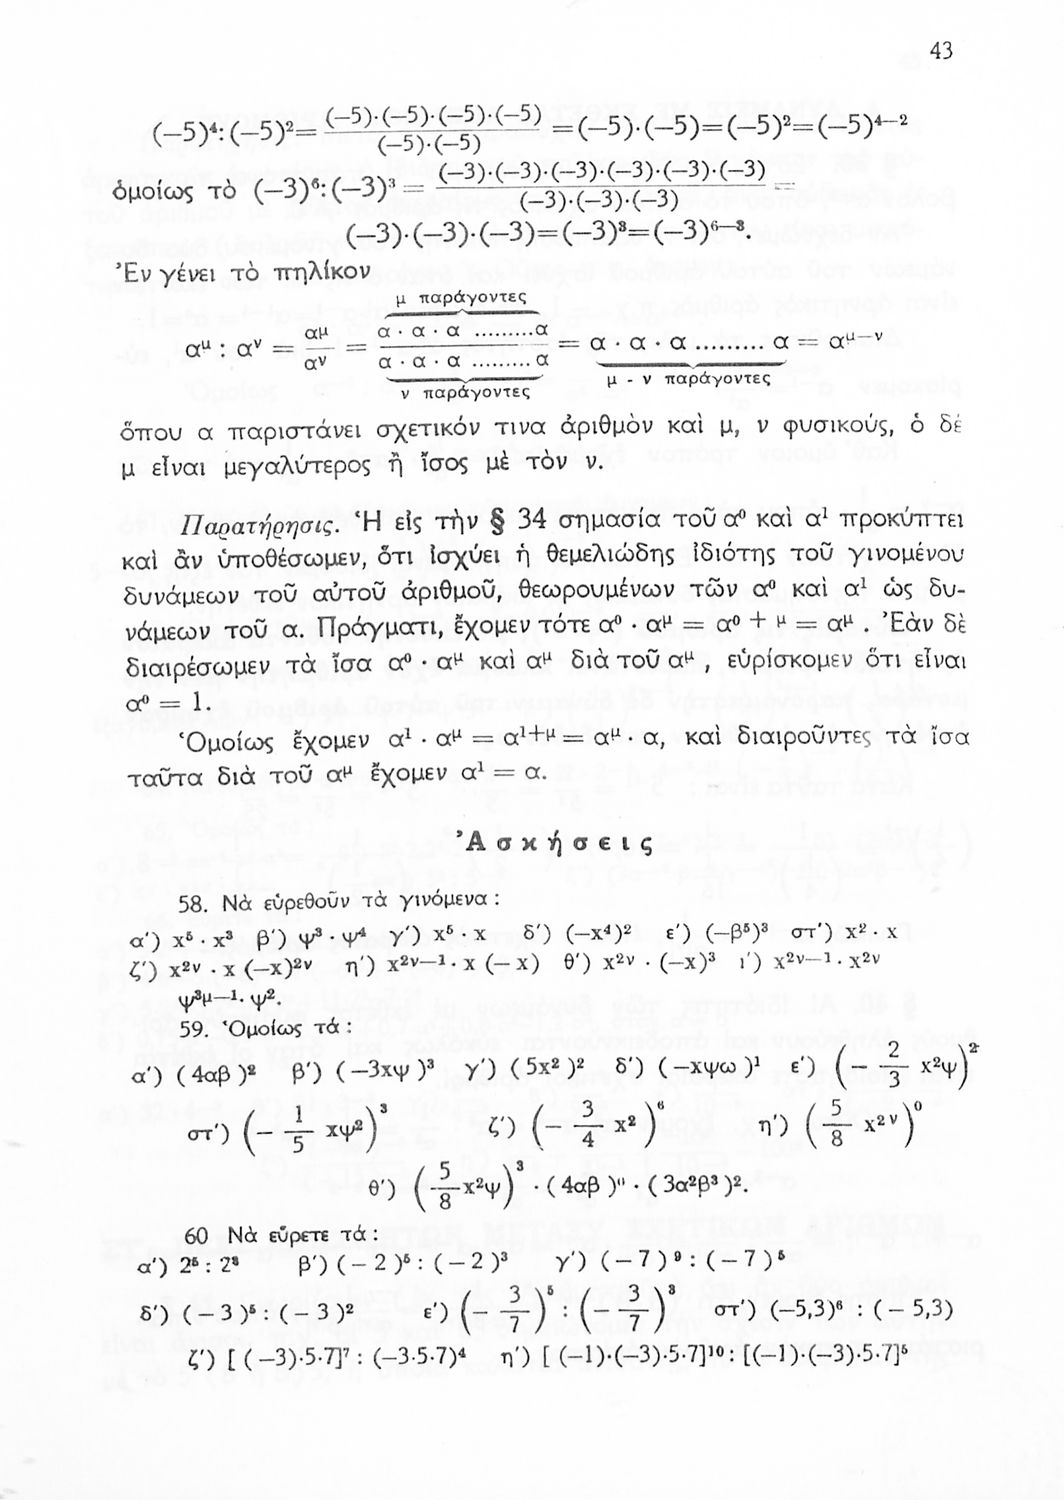 43
(—5)⁴:(—5)²= (—5)·(—5)·(—5)·(—5) / (—5)·(—5) =(—5)·(—5)=(—5)²=(—5)⁴—²
ὁμοίως τὸ (—3)⁶:(—3)³ = (—3)·(—3)·(—3)·(—3)·(—3)·(—3) / (—3)·(—3)·(—3) =
(—3)·(—3)·(—3)=(—3)³=(—3)⁶—³.
Ἐν γένει τὸ πηλίκον
μ παράγοντες
α^μ : α^ν = α^μ / α^ν = α · α · α .........α / α · α · α .........α = α · α · α .......... α = α^μ—ν
ν παράγοντες μ - ν παράγοντες
ὅπου α παριστάνει σχετικόν τινα ἀριθμὸν καὶ μ, ν φυσικούς, ὁ δέ
μ εἶναι μεγαλύτερος ἢ ἴσος μὲ τὸν ν.
Παρατήρησις. Ἡ εἰς τὴν § 34 σημασία τοῦ α⁰ καὶ α¹ προκύπτει
καὶ ἂν ὑποθέσωμεν, ὅτι ἰσχύει ἡ θεμελιώδης ἰδιότης τοῦ γινομένου
δυνάμεων τοῦ αὐτοῦ ἀριθμοῦ, θεωρουμένων τῶν α⁰ καὶ α¹ ὡς δυ-
νάμεων τοῦ α. Πράγματι, ἔχομεν τότε α⁰ · α^μ = α^0 + μ = α^μ . Ἐὰν δὲ
διαιρέσωμεν τὰ ἴσα α⁰ · α^μ καὶ α^μ διὰ τοῦ α^μ , εὑρίσκομεν ὅτι εἶναι
α⁰ = 1.
Ὁμοίως ἔχομεν α¹ · α^μ = α^1+μ = α^μ · α, καὶ διαιροῦντες τὰ ἴσα
ταῦτα διὰ τοῦ α^μ ἔχομεν α¹ = α.
Ἀσκήσεις
58. Νὰ εὑρεθοῦν τὰ γινόμενα :
α') x⁵ · x³ β') ψ³ · ψ⁴ γ') x⁵ · x δ') (—x⁴)² ε') (—β⁵)³ στ') x² · x
ζ') x^2ν · x (—x)^2ν η') x^2ν—1 · x (— x) θ') x^2ν · (—x)³ ι') x^2ν—1 · x^2ν
ψ^3μ—1 · ψ².
59. Ὁμοίως τά :
α') ( 4αβ )² β') ( —3xψ )³ γ') ( 5x² )² δ') ( —xψω )¹ ε') (— 2/3 x²ψ)²
στ') (— 1/5 xψ²)³ ζ') (— 3/4 x²)⁶ η') ( 5/8 x^2ν)⁰
θ') ( 5/8 x²ψ)³ · ( 4αβ ) · ( 3α²β³ )².
60 Νὰ εὕρετε τά :
α') 2⁵ : 2³ β') ( — 2 )⁵ : ( — 2 )³ γ') ( — 7 )⁹ : ( — 7 )⁵
δ') ( — 3 )⁵ : ( — 3 )² ε') (— 3/7 )⁵ : (— 3/7 )³ στ') (—5,3)⁶ : ( — 5,3)
ζ') [ ( —3)·5·7]⁷ : (—3·5·7)⁴ η') [ (—1)·(—3)·5·7]¹⁰ : [(—1)·(—3)·5.7]⁵